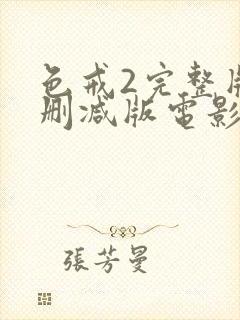 色戒2完整版
删减版电影
張芳曼